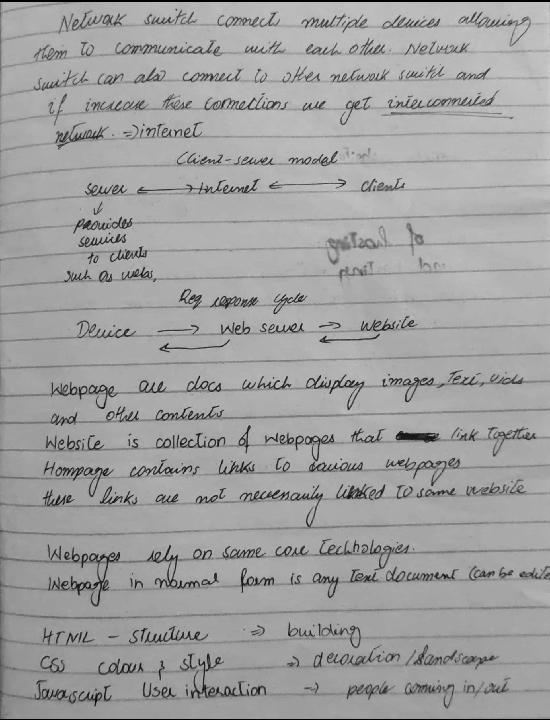 Network switch connects multiple devices allowing
them to communicate with each other. Network
switch can also connect to other network switch and
if increase these connections we get interconnected
network. ⇒ internet
Client-server model
server ⟷ Internet ⟷ clients
↓
provides
services
to clients
such as webs,
Req response cycle
Device → Web server → Website
← ←
Webpage are docs which display images, Text, vids
and other contents
Website is collection of webpages that link together
Hompage contains links to various webpages
these links are not necessarily linked to same website
Webpages rely on same core technologies.
Webpage in normal form is any text document (can be edite
HTML - structure ⇒ building
CSS colour & style ⇒ decoration / landscape
Javascript User interaction → people coming in/out